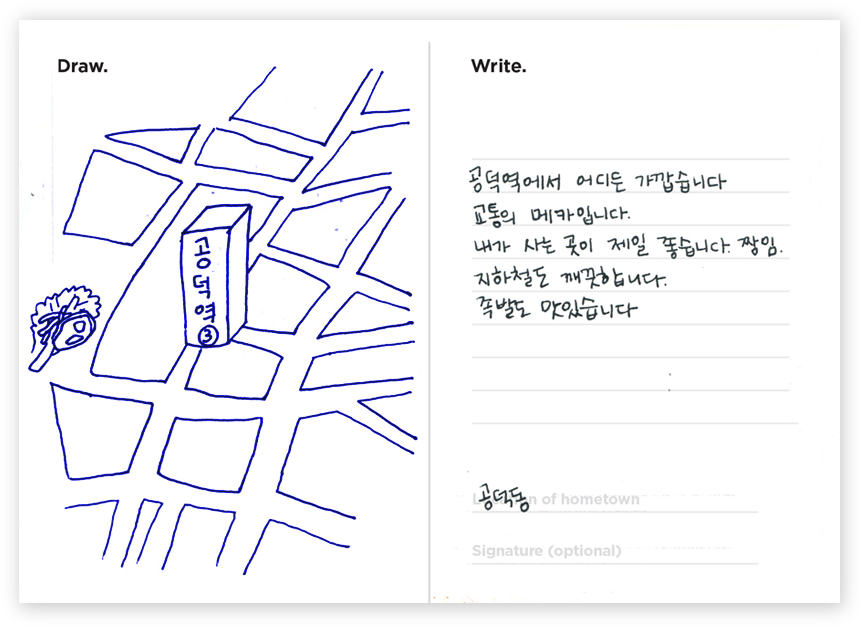 Draw.
공덕역
3
Write.
공덕역에서 어디든 가깝습니다
교통의 메카입니다.
내가 사는 곳이 제일 좋습니다. 짱임.
지하철도 깨끗합니다.
족발도 맛있습니다
공덕동
n of hometown
Signature (optional)